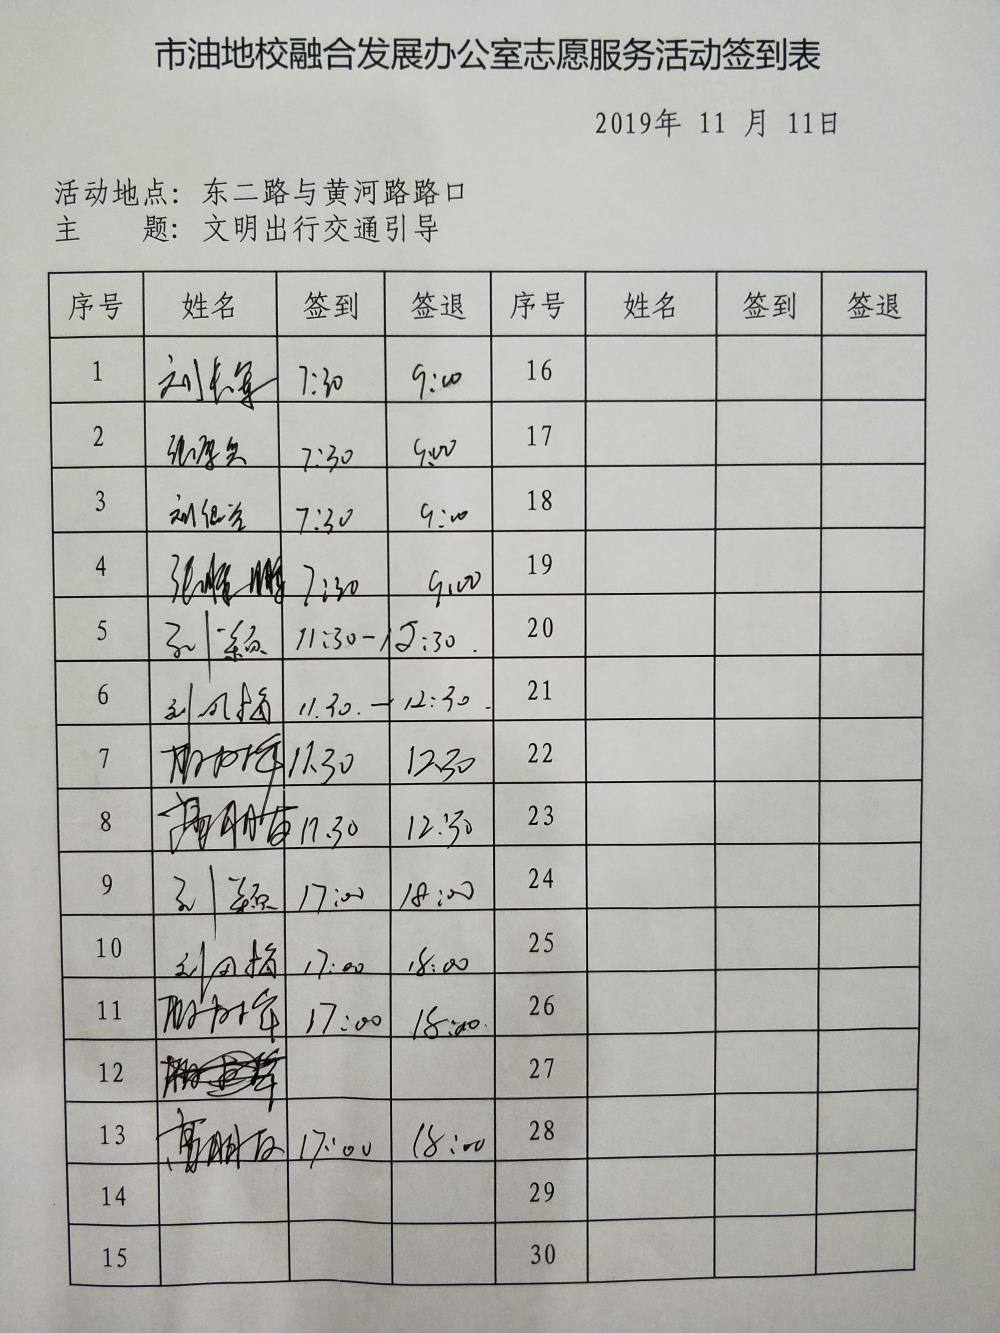 市油地校融合发展办公室志愿服务活动签到表
2019年 11 月 11日
活动地点: 东二路与黄河路路口
主 题: 文明出行交通引导
序号 姓名 签到 签退 序号 姓名 签到 签退
1 7:30 9:00 16
2 7:30 9:00 17
3 7:30 9:00 18
4 7:30 9:00 19
5 11:30-12:30. 20
6 11.30.-12:30. 21
7 11.30 12.30 22
8 11.30 12:30 23
9 17:00 18:00 24
10 17:00 18:00 25
11 17:00 18:00. 26
12 27
13 高朋友 17:00 18:00 28
14 29
15 30